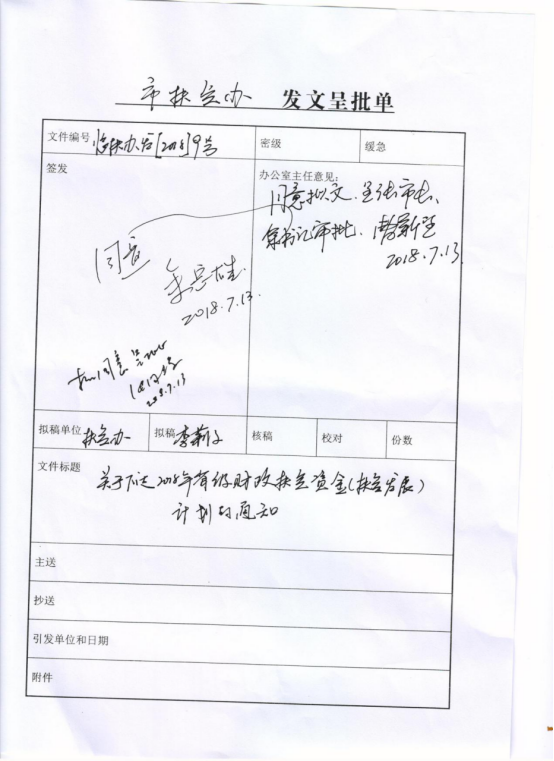 市扶贫办 发文呈批单
文件编号 扶办发[2018]9号
密级
缓急
签发
办公室主任意见:
同意拟文.呈张市长、
书记审批.
2018.7.13
同意
2018.7.13.
同意
2018.7.13
拟稿单位 扶贫办
拟稿 李
核稿
校对
份数
文件标题
关于下达2018年省级财政扶贫资金(扶贫发展)
计划的通知
主送
抄送
引发单位和日期
附件